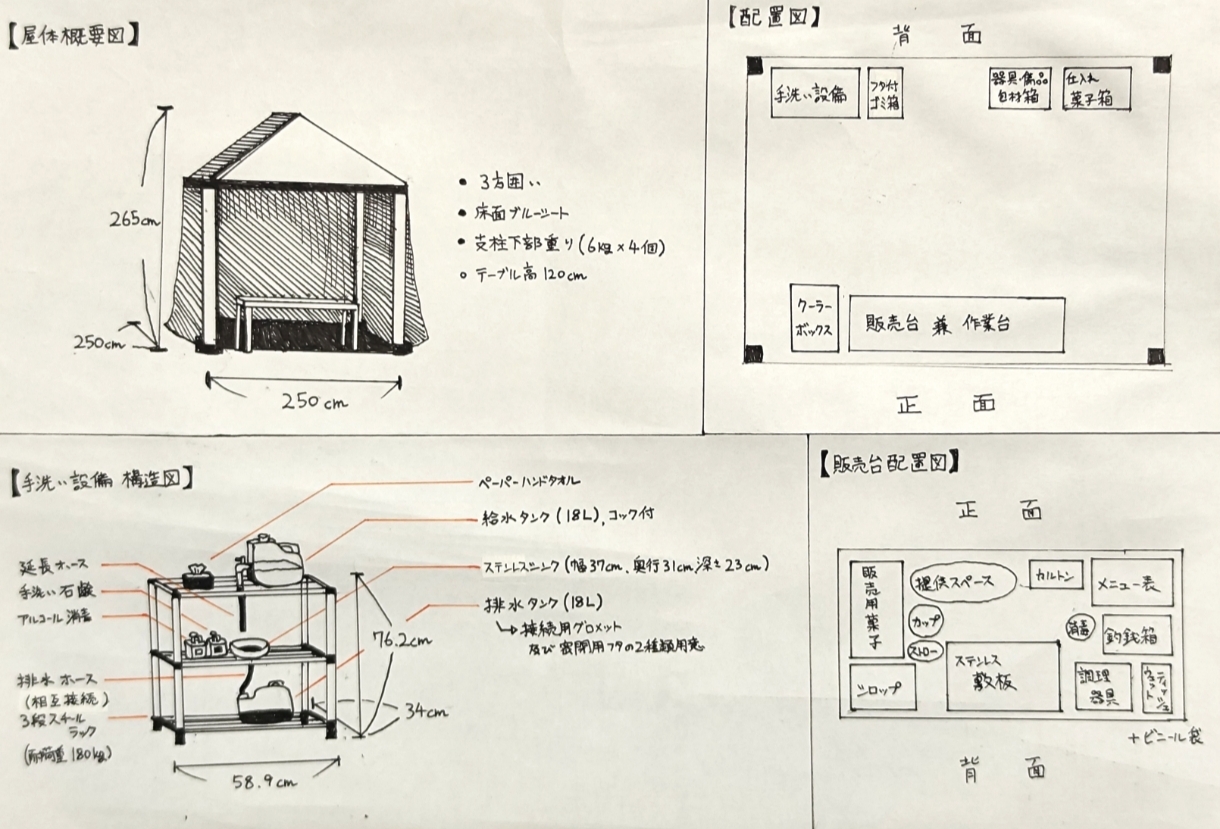 【屋体概要図】
265cm
250cm
250cm
• 3方囲い
• 床面ブルーシート
• 支柱下部重り(6kg×4個)
○ テーブル高 120cm
【配置図】
背 面
手洗い設備
フタ付
ゴミ箱
器具・備品
包材箱
仕入れ
菓子箱
クーラー
ボックス
販売台 兼 作業台
正 面
【手洗い設備 構造図】
ペーパーハンドタオル
給水タンク(18L),コック付
ステンレスシンク(幅37cm、奥行31cm,深さ23cm)
排水タンク(18L)
↳ 接続用グロメット
及び密閉用フタの2種類用意
延長ホース
手洗い石鹸
アルコール消毒
排水ホース
(相互接続)
3段スチール
ラック
(耐荷重180kg)
76.2cm
34cm
58.9cm
【販売台配置図】
正 面
販売用菓子
提供スペース
カルトン
メニュー表
カップ
ストロー
消毒
釣銭箱
シロップ
ステンレス
敷板
調理
器具
ウェット
ティッシュ
+ビニール袋
背 面